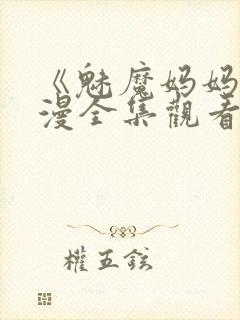 《魅魔妈妈
漫全集觀看
權五鉉